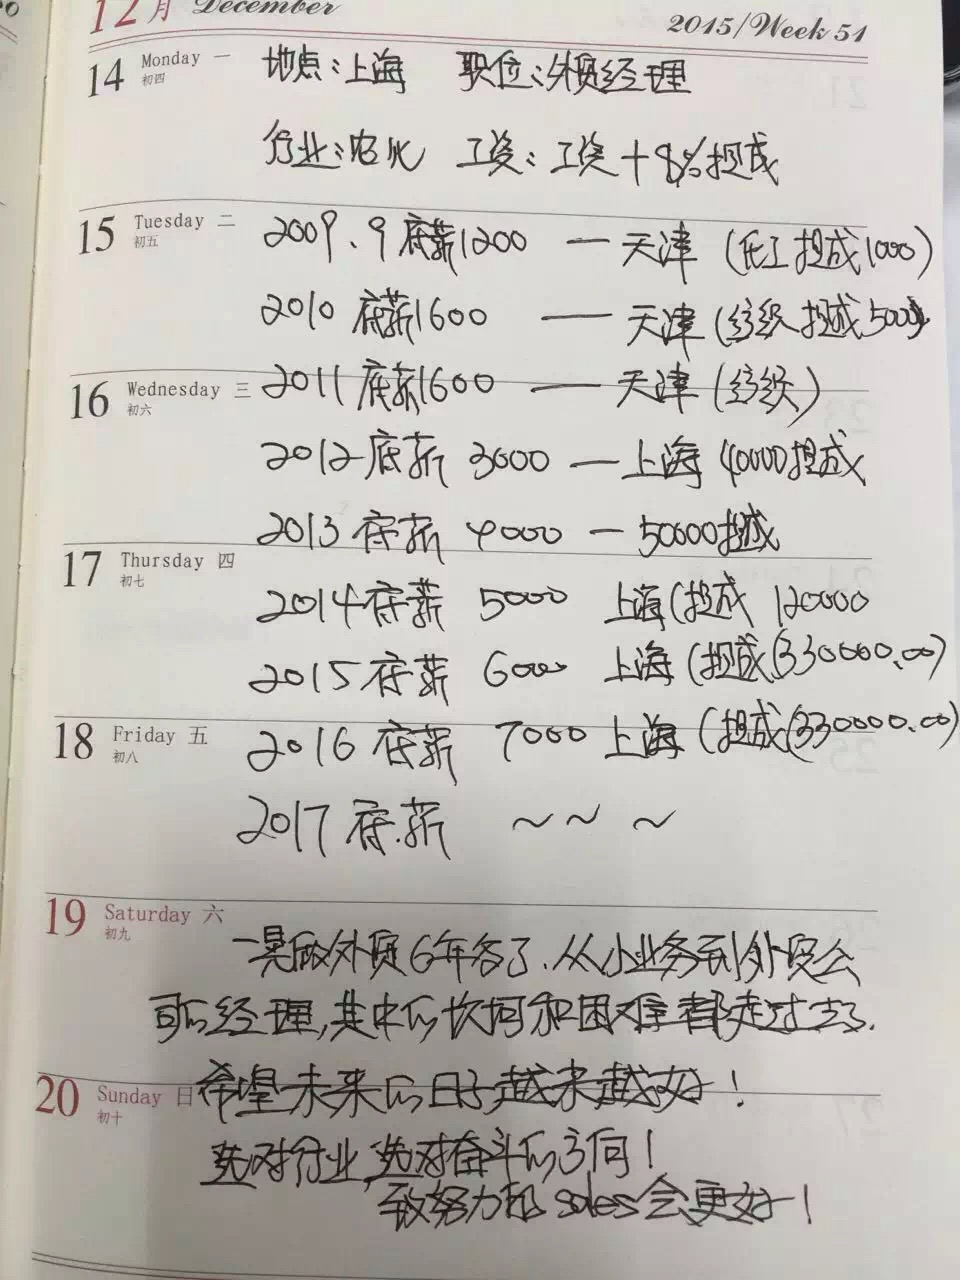 12月 December
2015/Week 51
14 Monday 一 初四
地点：上海 职位：外贸经理
行业：农化 工资：工资+8%提成
15 Tuesday 二 初五
2009.9 底薪1200 — 天津 (化工提成1000)
2010 底薪1600 — 天津 (纺织提成5000)
16 Wednesday 三 初六
2011 底薪1600 — 天津 (纺织)
2012 底薪 3000 — 上海 40000提成
2013 底薪 4000 — 50000提成
17 Thursday 四 初七
2014 底薪 5000 上海(提成 120000
2015 底薪 6000 上海 (提成(330000.00)
18 Friday 五 初八
2016 底薪 7000 上海 (提成(330000.00)
2017 底薪 ~ ~ ~
19 Saturday 六 初九
一晃做外贸6年多了.从小业务到外贸公
司的经理,其中的坎坷和困难都走过去了.
20 Sunday 日 初十
希望未来的日子越来越好！
选对行业 选对奋斗的方向！
致努力的 sales会更好！